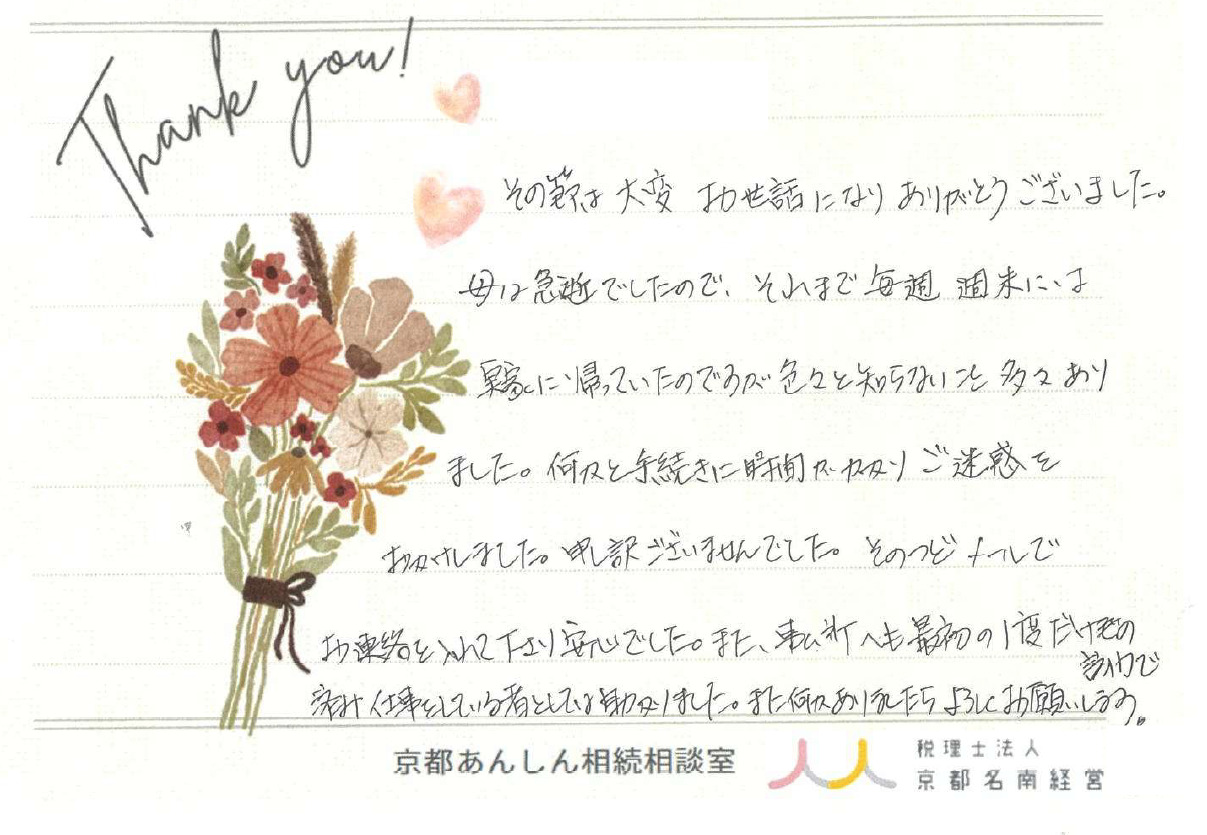 Thank you!
その節は 大変 お世話になり ありがとうございました。
母は急逝でしたので、それまで毎週 週末には
実家に帰っていたのですが色々と知らないこと多々あり
ました。何及と手続きに時間がかかり ご迷惑を
おかけしました。申し訳ございませんでした。そのつどメールで
お連絡を入れて下さり安心でした。また、事ム所へも最初の1度だけの
訪問で
家計 仕事をしている者としては助かりました。また何かありましたらよろしくお願いします。
京都あんしん相続相談室
税理士法人
京都名南経営